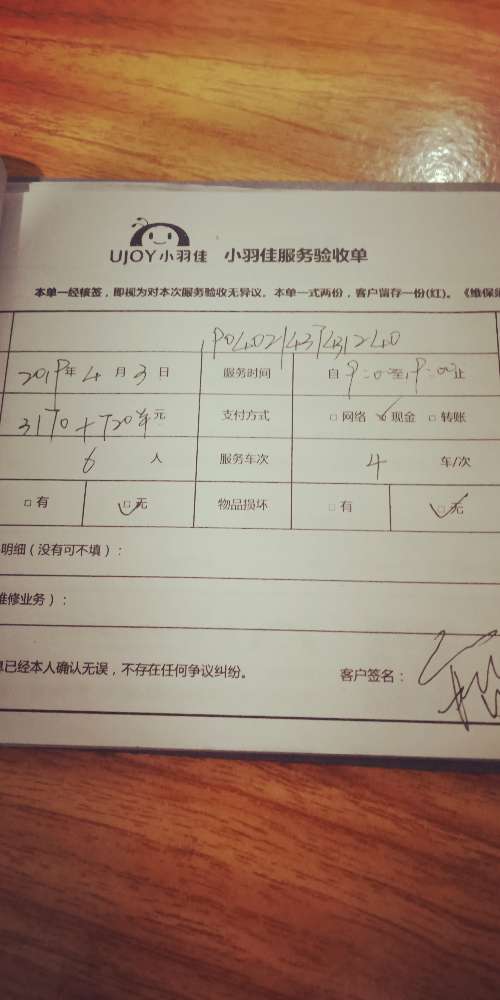 UJOY小羽佳 小羽佳服务验收单
本单一经核签，即视为对本次服务验收无异议。本单一式两份，客户留存一份(红)。《维保
2019年4月3日 服务时间 自9:00至9:00止
元 支付方式 □网络 □现金 □转账
6人 服务车次 4车/次
□有 □无 物品损坏 □有 □无
明细（没有可不填）：
维修业务）：
息已经本人确认无误，不存在任何争议纠纷。 客户签名：